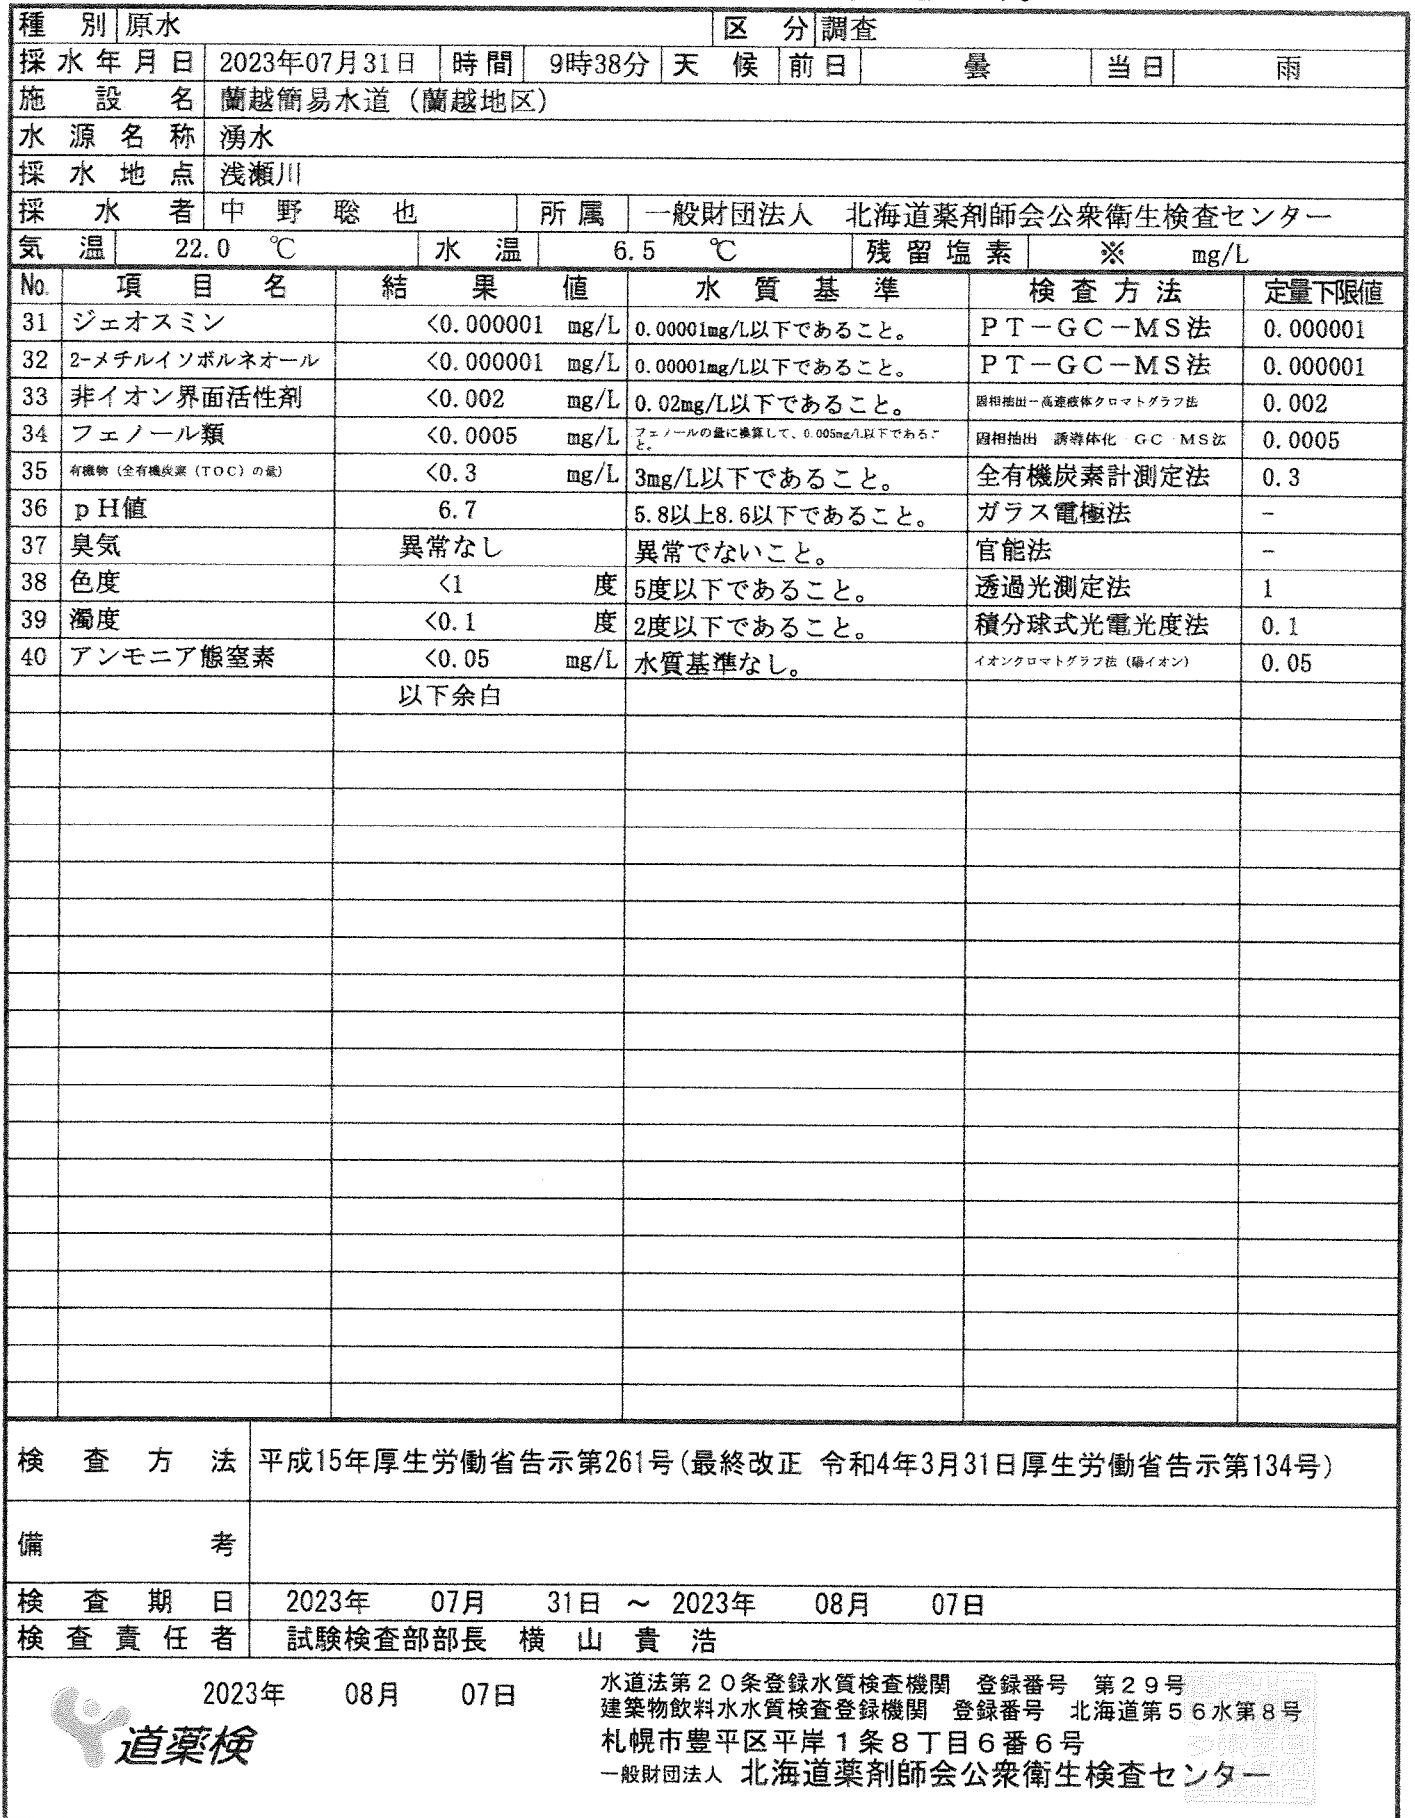 種別 原水 区分 調査
採水年月日 2023年07月31日 時間 9時38分 天候 前日 曇 当日 雨
施設名 蘭越簡易水道（蘭越地区）
水源名称 湧水
採水地点 浅瀬川
採水者 中野聡也 所属 一般財団法人 北海道薬剤師会公衆衛生検査センター
気温 22.0 ℃ 水温 6.5 ℃ 残留塩素 ※ mg/L
No. 項目名 結果値 水質基準 検査方法 定量下限値
31 ジェオスミン <0.000001 mg/L 0.00001mg/L以下であること。 ＰＴ－ＧＣ－ＭＳ法 0.000001
32 2-メチルイソボルネオール <0.000001 mg/L 0.00001mg/L以下であること。 ＰＴ－ＧＣ－ＭＳ法 0.000001
33 非イオン界面活性剤 <0.002 mg/L 0.02mg/L以下であること。 固相抽出－高速液体クロマトグラフ法 0.002
34 フェノール類 <0.0005 mg/L フェノールの量に換算して、0.005mg/L以下であること。 固相抽出－誘導体化－ＧＣ－ＭＳ法 0.0005
35 有機物（全有機炭素（ＴＯＣ）の量） <0.3 mg/L 3mg/L以下であること。 全有機炭素計測定法 0.3
36 ｐＨ値 6.7 5.8以上8.6以下であること。 ガラス電極法 −
37 臭気 異常なし 異常でないこと。 官能法 −
38 色度 <1 度 5度以下であること。 透過光測定法 1
39 濁度 <0.1 度 2度以下であること。 積分球式光電光度法 0.1
40 アンモニア態窒素 <0.05 mg/L 水質基準なし。 イオンクロマトグラフ法（陽イオン） 0.05
以下余白
検査方法 平成15年厚生労働省告示第261号(最終改正 令和4年3月31日厚生労働省告示第134号)
備考
検査期日 2023年 07月 31日 ～ 2023年 08月 07日
検査責任者 試験検査部部長 横山貴浩
2023年 08月 07日
道薬検
水道法第２０条登録水質検査機関 登録番号 第２９号
建築物飲料水水質検査登録機関 登録番号 北海道第５６水第８号
札幌市豊平区平岸１条８丁目６番６号
一般財団法人 北海道薬剤師会公衆衛生検査センター